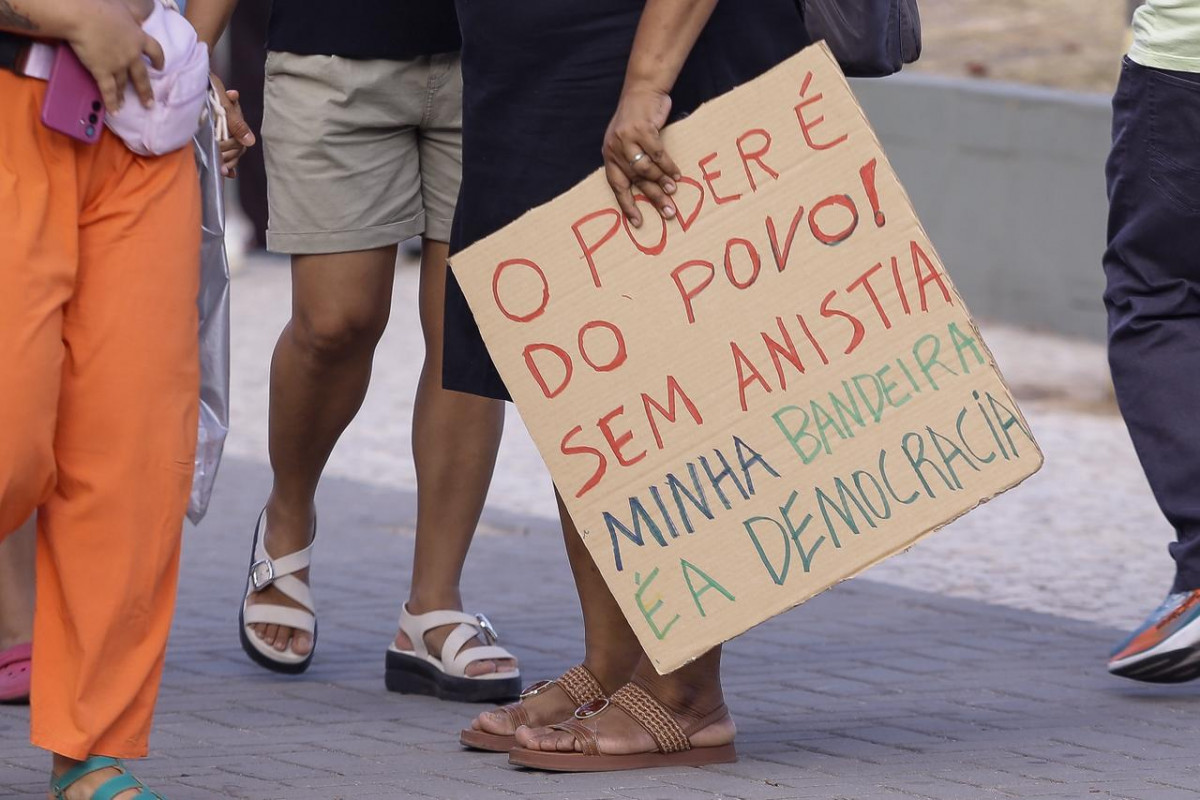 O PODER É
DO POVO!
SEM ANISTIA
MINHA BANDEIRA
É A DEMOCRACIA